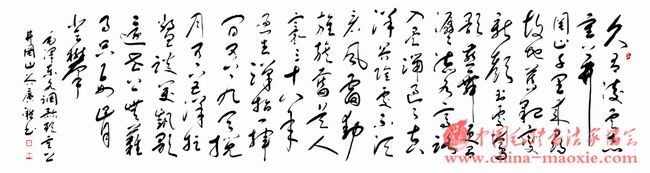 久有凌云志
重上井
冈山千里来寻
故地旧貌变
新颜到处莺
歌燕舞更有
潺潺流水高路
入云端过了黄
洋界险处不须
看风雷动
旌旗奋是人
寰三十八年
过去弹指一挥
间可上九天揽
月可下五洋捉
鳖谈笑凯歌
还世上无难
事只要肯
登攀
毛泽东水调歌头重上
井冈山
中国毛体书法家协会
www.china-maoxie.com